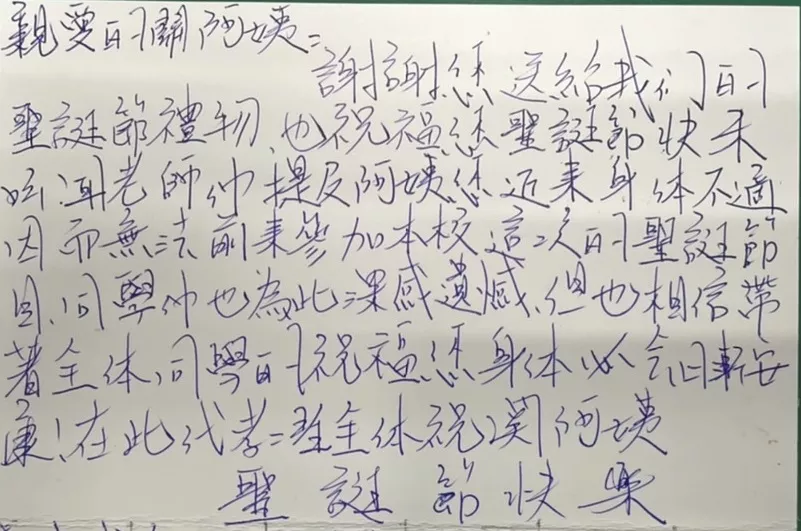 親愛的關阿姨：
謝謝您送給我们的
聖誕節禮物,也祝福您聖誕節快禾
老師仲提及阿姨您近來身体不適
因而無法前來參加本校這次的聖誕節
目,同學仲也為此深感遺憾,但也相信帶
著全体同學的祝福您身体必会日安
康!在此代孝二全体祝関阿姨
聖誕節快樂